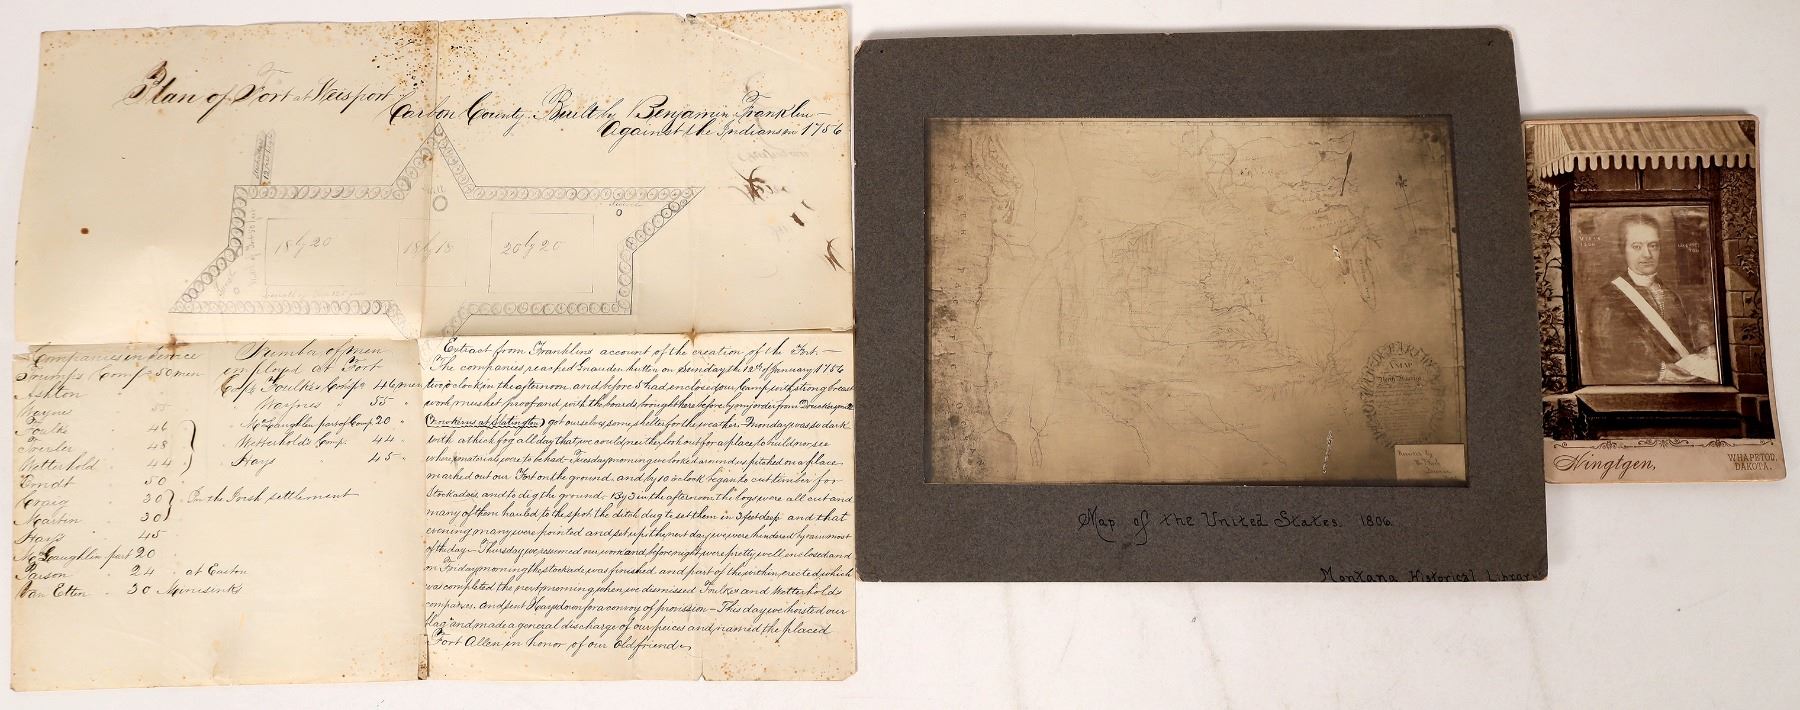 Plan of Fort at Weisport
Carbon County. Built by Benjamin Franklin
Against the Indians in 1756
Well
18 by 20
18 by 18
20 by 20
Swivel
Swivel
Companies in Service
Trumps Comp 50 men
Ashton " "
Waynes " 55
Foulks " 46
Trexler " 48
Wetterhold " 44
Erndt " 50
Craig " 30
Martin " 30
On the Irish settlement
Hays " 45
McLaughlin part 20
Parson " 24 " at Easton
Van Etten " 30 Minisinks
Number of men
employed at Fort
Capt Foulks Comp 46 men
" Waynes " 55 "
" McLaughlin part of Comp 20 "
" Wetterholds Comp. 44 "
" Hays " 45 "
Extract from Franklins account of the creation of the Fort. —
The companies reached Gnauden hutten on Sunday the 12th of January 1756
two o clock in the afternoon and before 5 had enclosed our Camp with strong breast
work musket proof and with the boards brought here before by my order from
(now Kerns at Slatington) got ourselves some shelter for the weather. Monday was so dark
with a thick fog all day that we could neither look out for a place to build nor see
where materials were to be had — Tuesday morning we looked around us pitched on a place
marked out our Fort on the ground, and by 10 o'clock began to cut timber for
stockades and to dig the ground. By 3 in the afternoon the logs were all cut and
many of them hauled to the spot, the ditch dug to set them in 3 feet deep and that
evening many were pointed and set up, the next day we were hindered by rain most
of the day. Thursday we resumed our work and before night were pretty well enclosed and
on Friday morning the stockade was finished and part of the within erected which
was completed the next morning when we dismissed Foulkes and Wetterholds
companies. and sent Hays down for a convoy of provission — This day we hoisted our
flag and made a general discharge of our peices and named the placed
Fort Allen in honor of our old friend
A MAP
North America
Map of the United States. 1806.
Montana Historical Library
Ningtgen,
WHAPETOD,
DAKOTA.